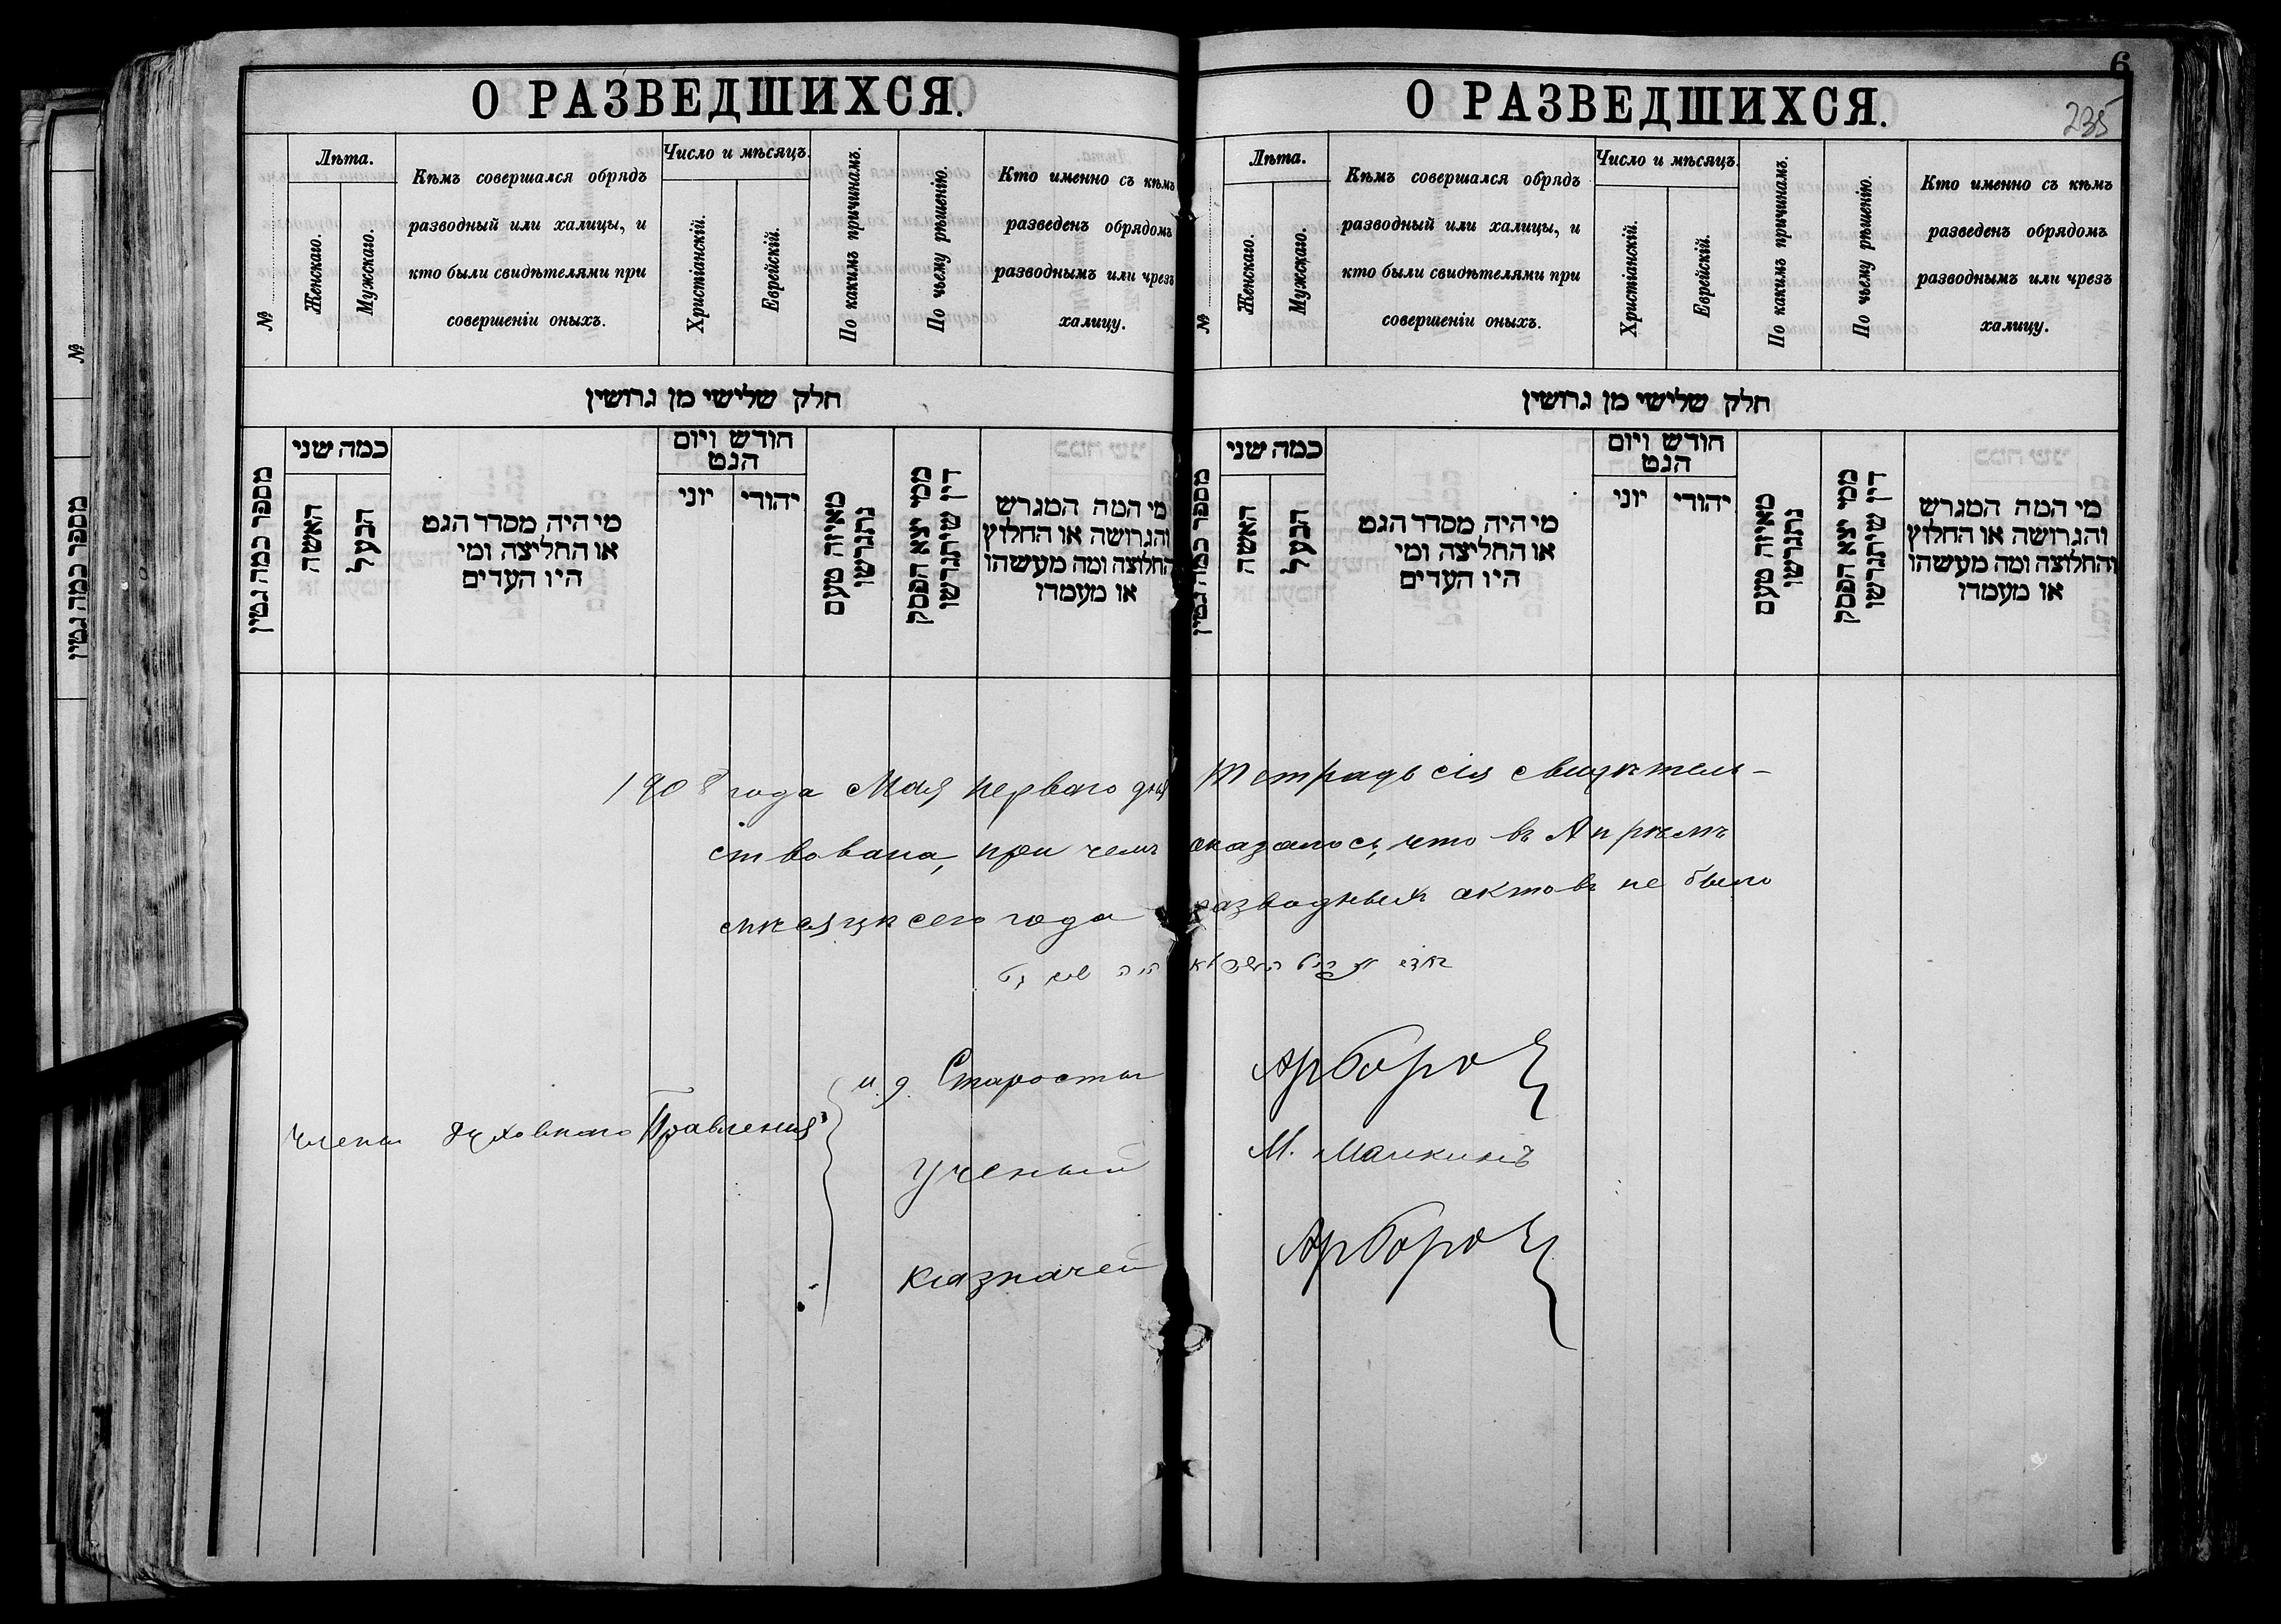 О РАЗВЕДШИХСЯ.
№
Лѣта.
Женскаго.
Мужскаго.
Кѣмъ совершался обрядъ
разводный или халицы, и
кто были свидѣтелями при
совершеніи оныхъ.
Число и мѣсяцъ.
Христіанскій.
Еврейскій.
По какимъ причинамъ.
По чьему рѣшенію.
Кто именно съ кѣмъ
разведенъ обрядомъ
разводнымъ или чрезъ
халицу.
חלק שלישי מן גרושין
מספר כמה גטין
כמה שני
האשה
הבעל
מי היה מסדר הגט
או החליצה ומי
היו העדים
חודש ויום
הגט
יוני
יהודי
מאיזה טעם
נתגרשו
ממי יצא הפסק
דין שיתגרשו
מי המה המגרש
והגרושה או החלוץ
והחלוצה ומה מעשהו
או מעמדו
6
235
О РАЗВЕДШИХСЯ.
№
Лѣта.
Женскаго.
Мужскаго.
Кѣмъ совершался обрядъ
разводный или халицы, и
кто были свидѣтелями при
совершеніи оныхъ.
Число и мѣсяцъ.
Христіанскій.
Еврейскій.
По какимъ причинамъ.
По чьему рѣшенію.
Кто именно съ кѣмъ
разведенъ обрядомъ
разводнымъ или чрезъ
халицу.
חלק שלישי מן גרושין
מספר כמה גטין
כמה שני
האשה
הבעל
מי היה מסדר הגט
או החליצה ומי
היו העדים
חודש ויום
הגט
יוני
יהודי
מאיזה טעם
נתגרשו
ממי יצא הפסק
דין שיתגרשו
מי המה המגרש
והגרושה או החלוץ
והחלוצה ומה מעשהו
או מעמדו
1908 года Мая перваго дня Тетрадь сія свидѣтель-
ствована, при чемъ оказалось, что въ Апрѣлѣ
мѣсяцѣ сего года разводныхъ актовъ не было
Члены Духовнаго Правленія
и. д. Старосты
Ученый М. Малкинъ
Казначей
№
מספר כמה גטין